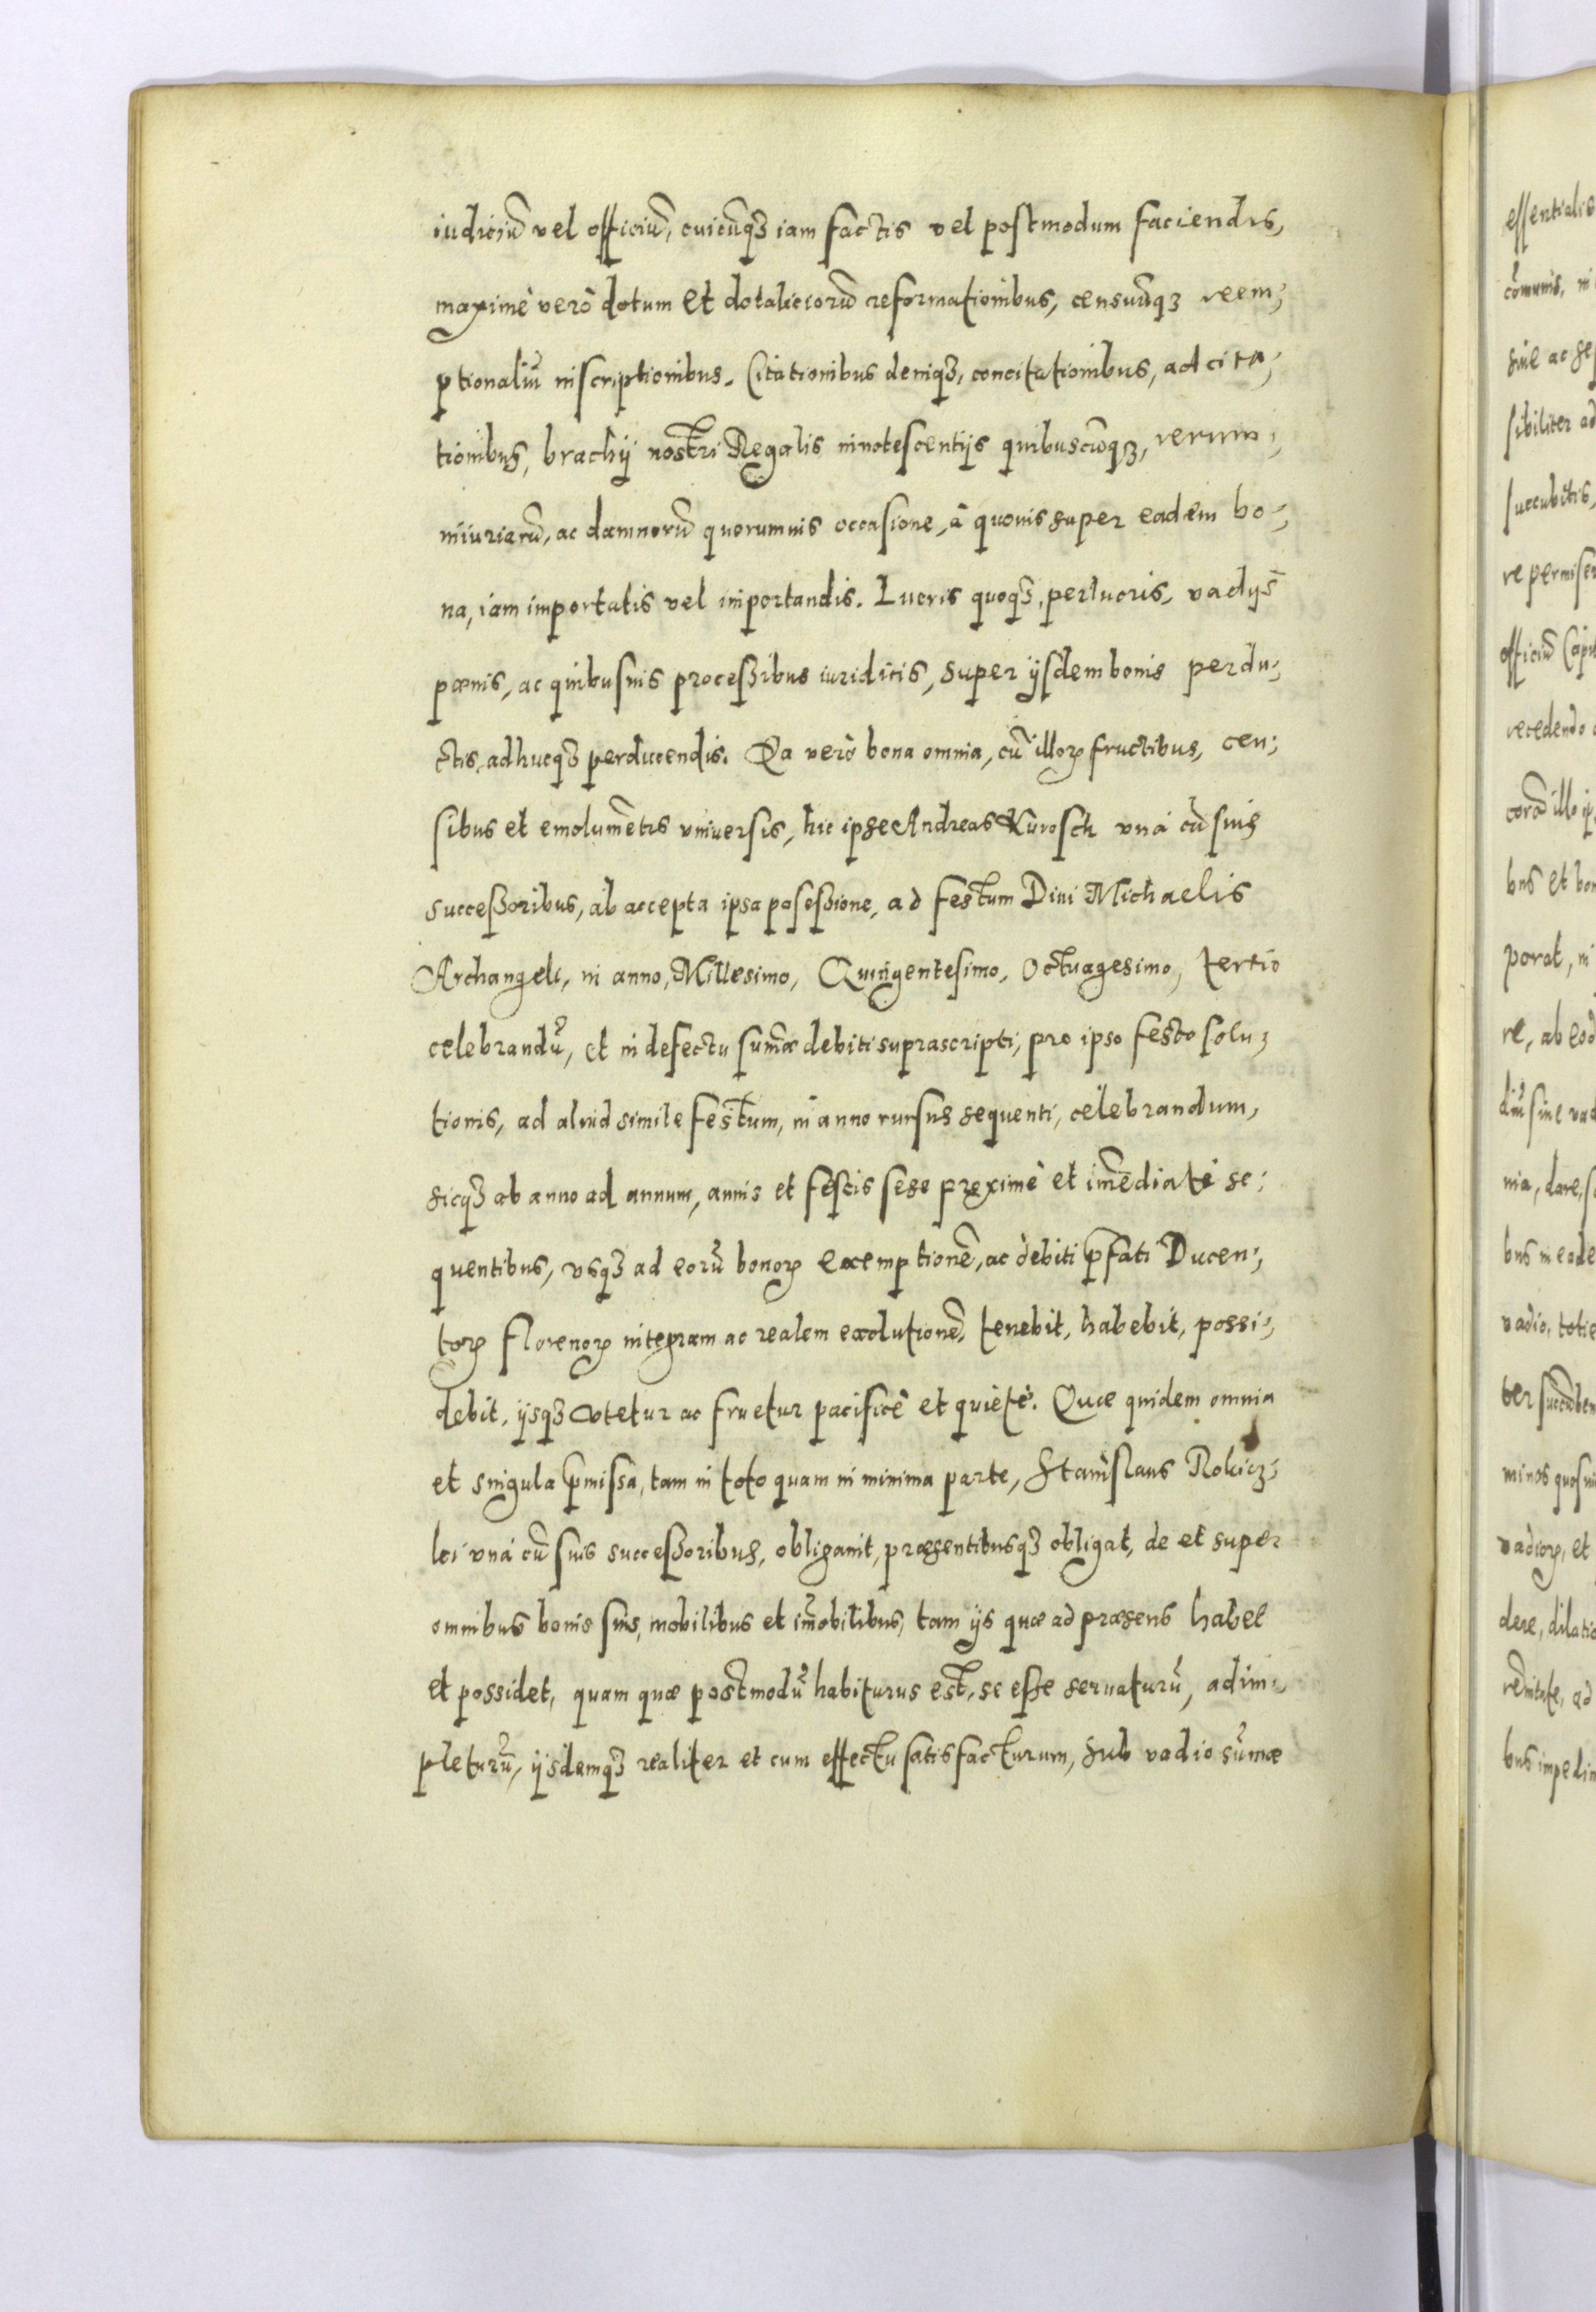 iudiciũ vel officiũ, cuicũqꝫ iam factis vel postmodum faciendis,
maximè verò dotum et dotaliciorũ reformationibus, censuũqꝫ reem;
ptionaliũ inscriptionibus. Citationibus deniqꝫ, concitationibus, ad cita;
tionibus, brachij nostri Regalis innotescentijs quibuscũqꝫ, rerum,
iniuriarũ, ac damnorũ quorumuis occasione, à quouis super eadem bo;
na, iam importatis vel importandis. Lucris quoqꝫ, perlucris, vadijs
pœnis, ac quibusuis processibus iuridicis, super ijsdem bonis perdu;
ctis, adhucqꝫ perducendis. Qa verò bona omnia, cũ illoꝝ fructibus, cen;
sibus et emolumẽtis vniuersis, hic ipse Andreas Kurosch vnà cũ suis
successoribus, ab accepta ipsa posessione, ad festum Diui Michaelis
Archangeli, in anno, Millesimo, Quingentesimo, Octuagesimo, tertio
celebrandũ, et in defectu sum̃æ debiti suprascripti, pro ipso festo solu;
tionis, ad aliud simile festum, in anno rursus sequenti, celebrandum,
sicqꝫ ab anno ad annum, annis et festis sese proximè et im̃ediatè se;
quentibus, vsqꝫ ad eorũ bonoꝝ exemptionẽ, ac debiti p̃fati Ducen;
toꝝ florenoꝝ integram ac realem exolutionẽ, tenebit, habebit, possi;
debit, ijsqꝫ vtetur ac fruetur pacificè et quietè. Quæ quidem omnia
et singula p̃missa, tam in toto quam in minima parte, Stanislaus Rokicz;
ki vnà cũ suis successoribus, obligauit, præsentibusqꝫ obligat, de et super
omnibus bonis suis, mobilibus et im̃obilibus, tam ijs quæ ad præsens habet
et possidet, quam quæ postmodũ habiturus est, se esse seruaturũ, adim;
pleturũ, ijsdemqꝫ realiter et cum effectu satisfacturum, sub vadio sum̃æ
essentialis
cõmunis, in
siue ac se
sibiliter ad
succubitis,
re permiser
officiũ Capit
recedendo
corã illo ip
bus et bon
porat, in
re, ab eod
diũ siue vad
nia, dare, s
bus in eade
vadio, totie
ter succũben
minos quosui
vadioꝝ, et
dere, dilatio
remitate, ad
bus impedim